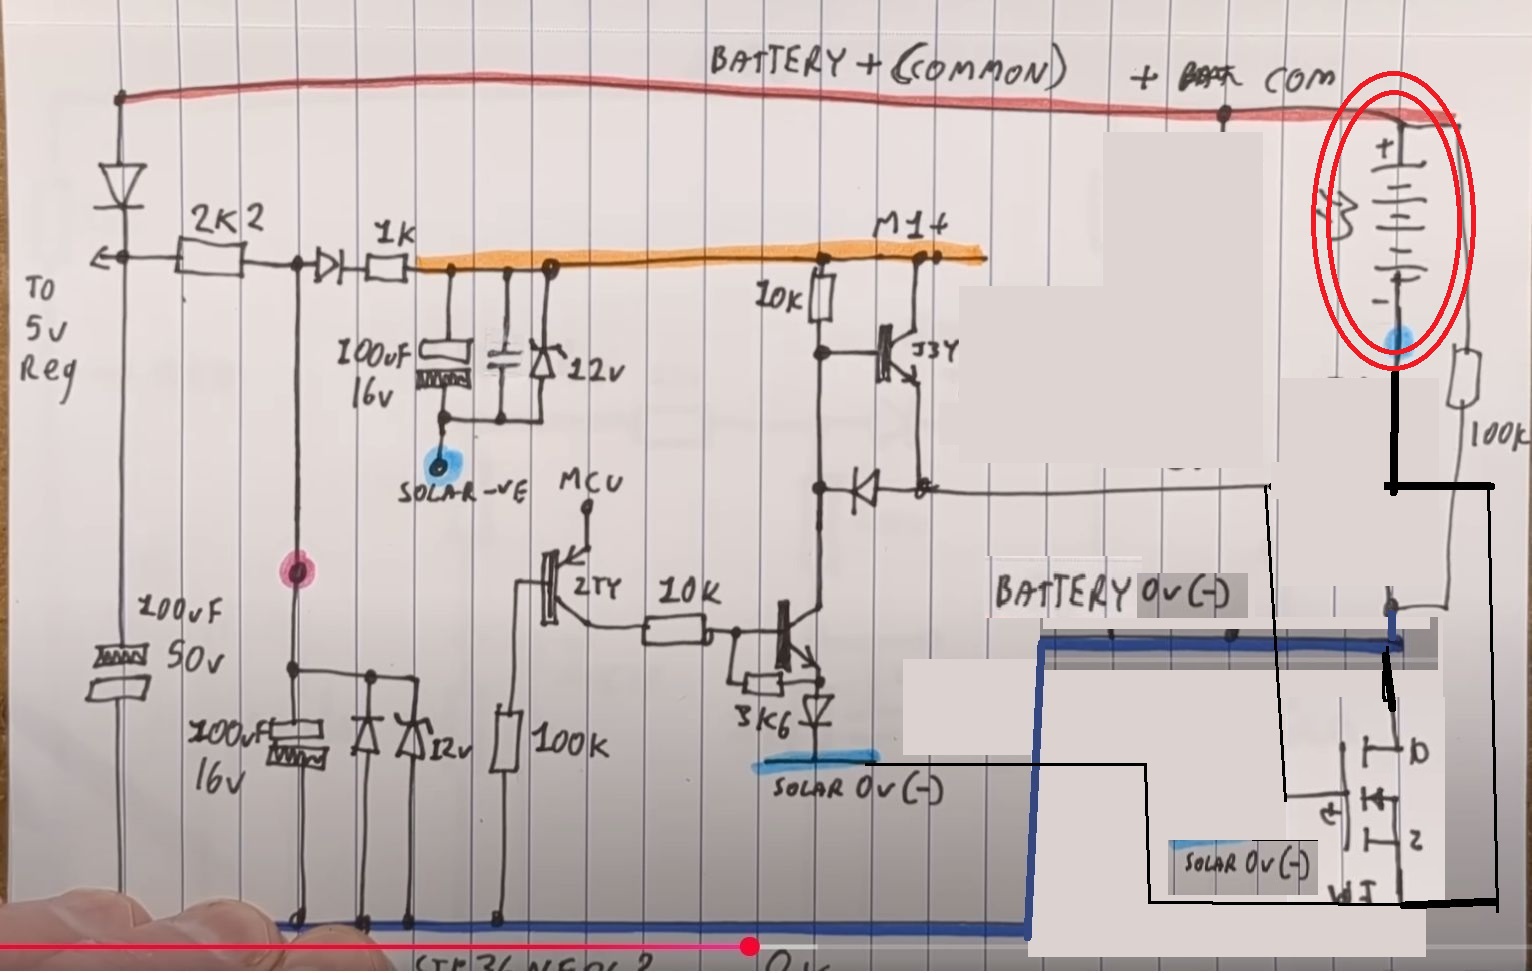 BATTERY + (COMMON)
+ BATT COM
2K2
1K
M1+
+
TO
5v
Reg
10K
J3Y
100uF
16v
12v
-
SOLAR -VE
MCU
100K
2TY
10K
BATTERY 0v(-)
100uF
50v
3K6
100uF
16v
12v
100K
SOLAR 0v(-)
D
S
SOLAR 0v(-)